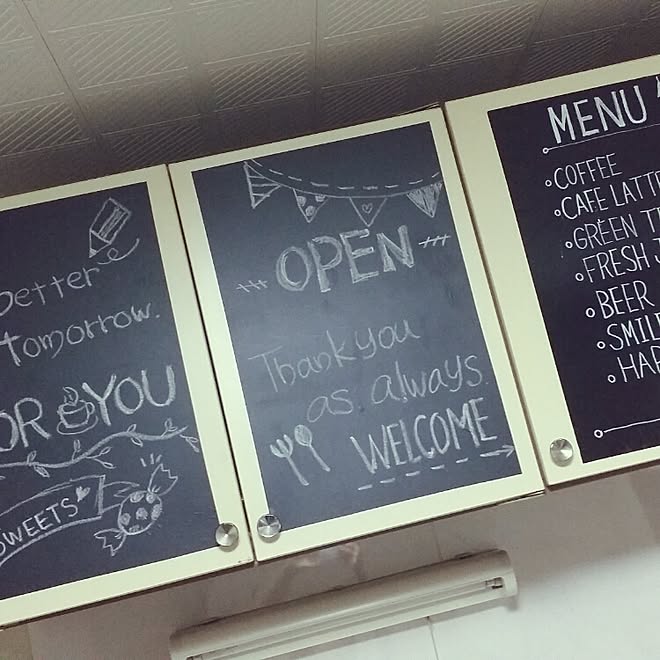 better
tomorrow.
OR YOU
SWEETS
OPEN
Thank you
as always.
WELCOME
MENU
COFFEE
CAFE LATTE
GREEN T
FRESH J
BEER
SMILE
HAP